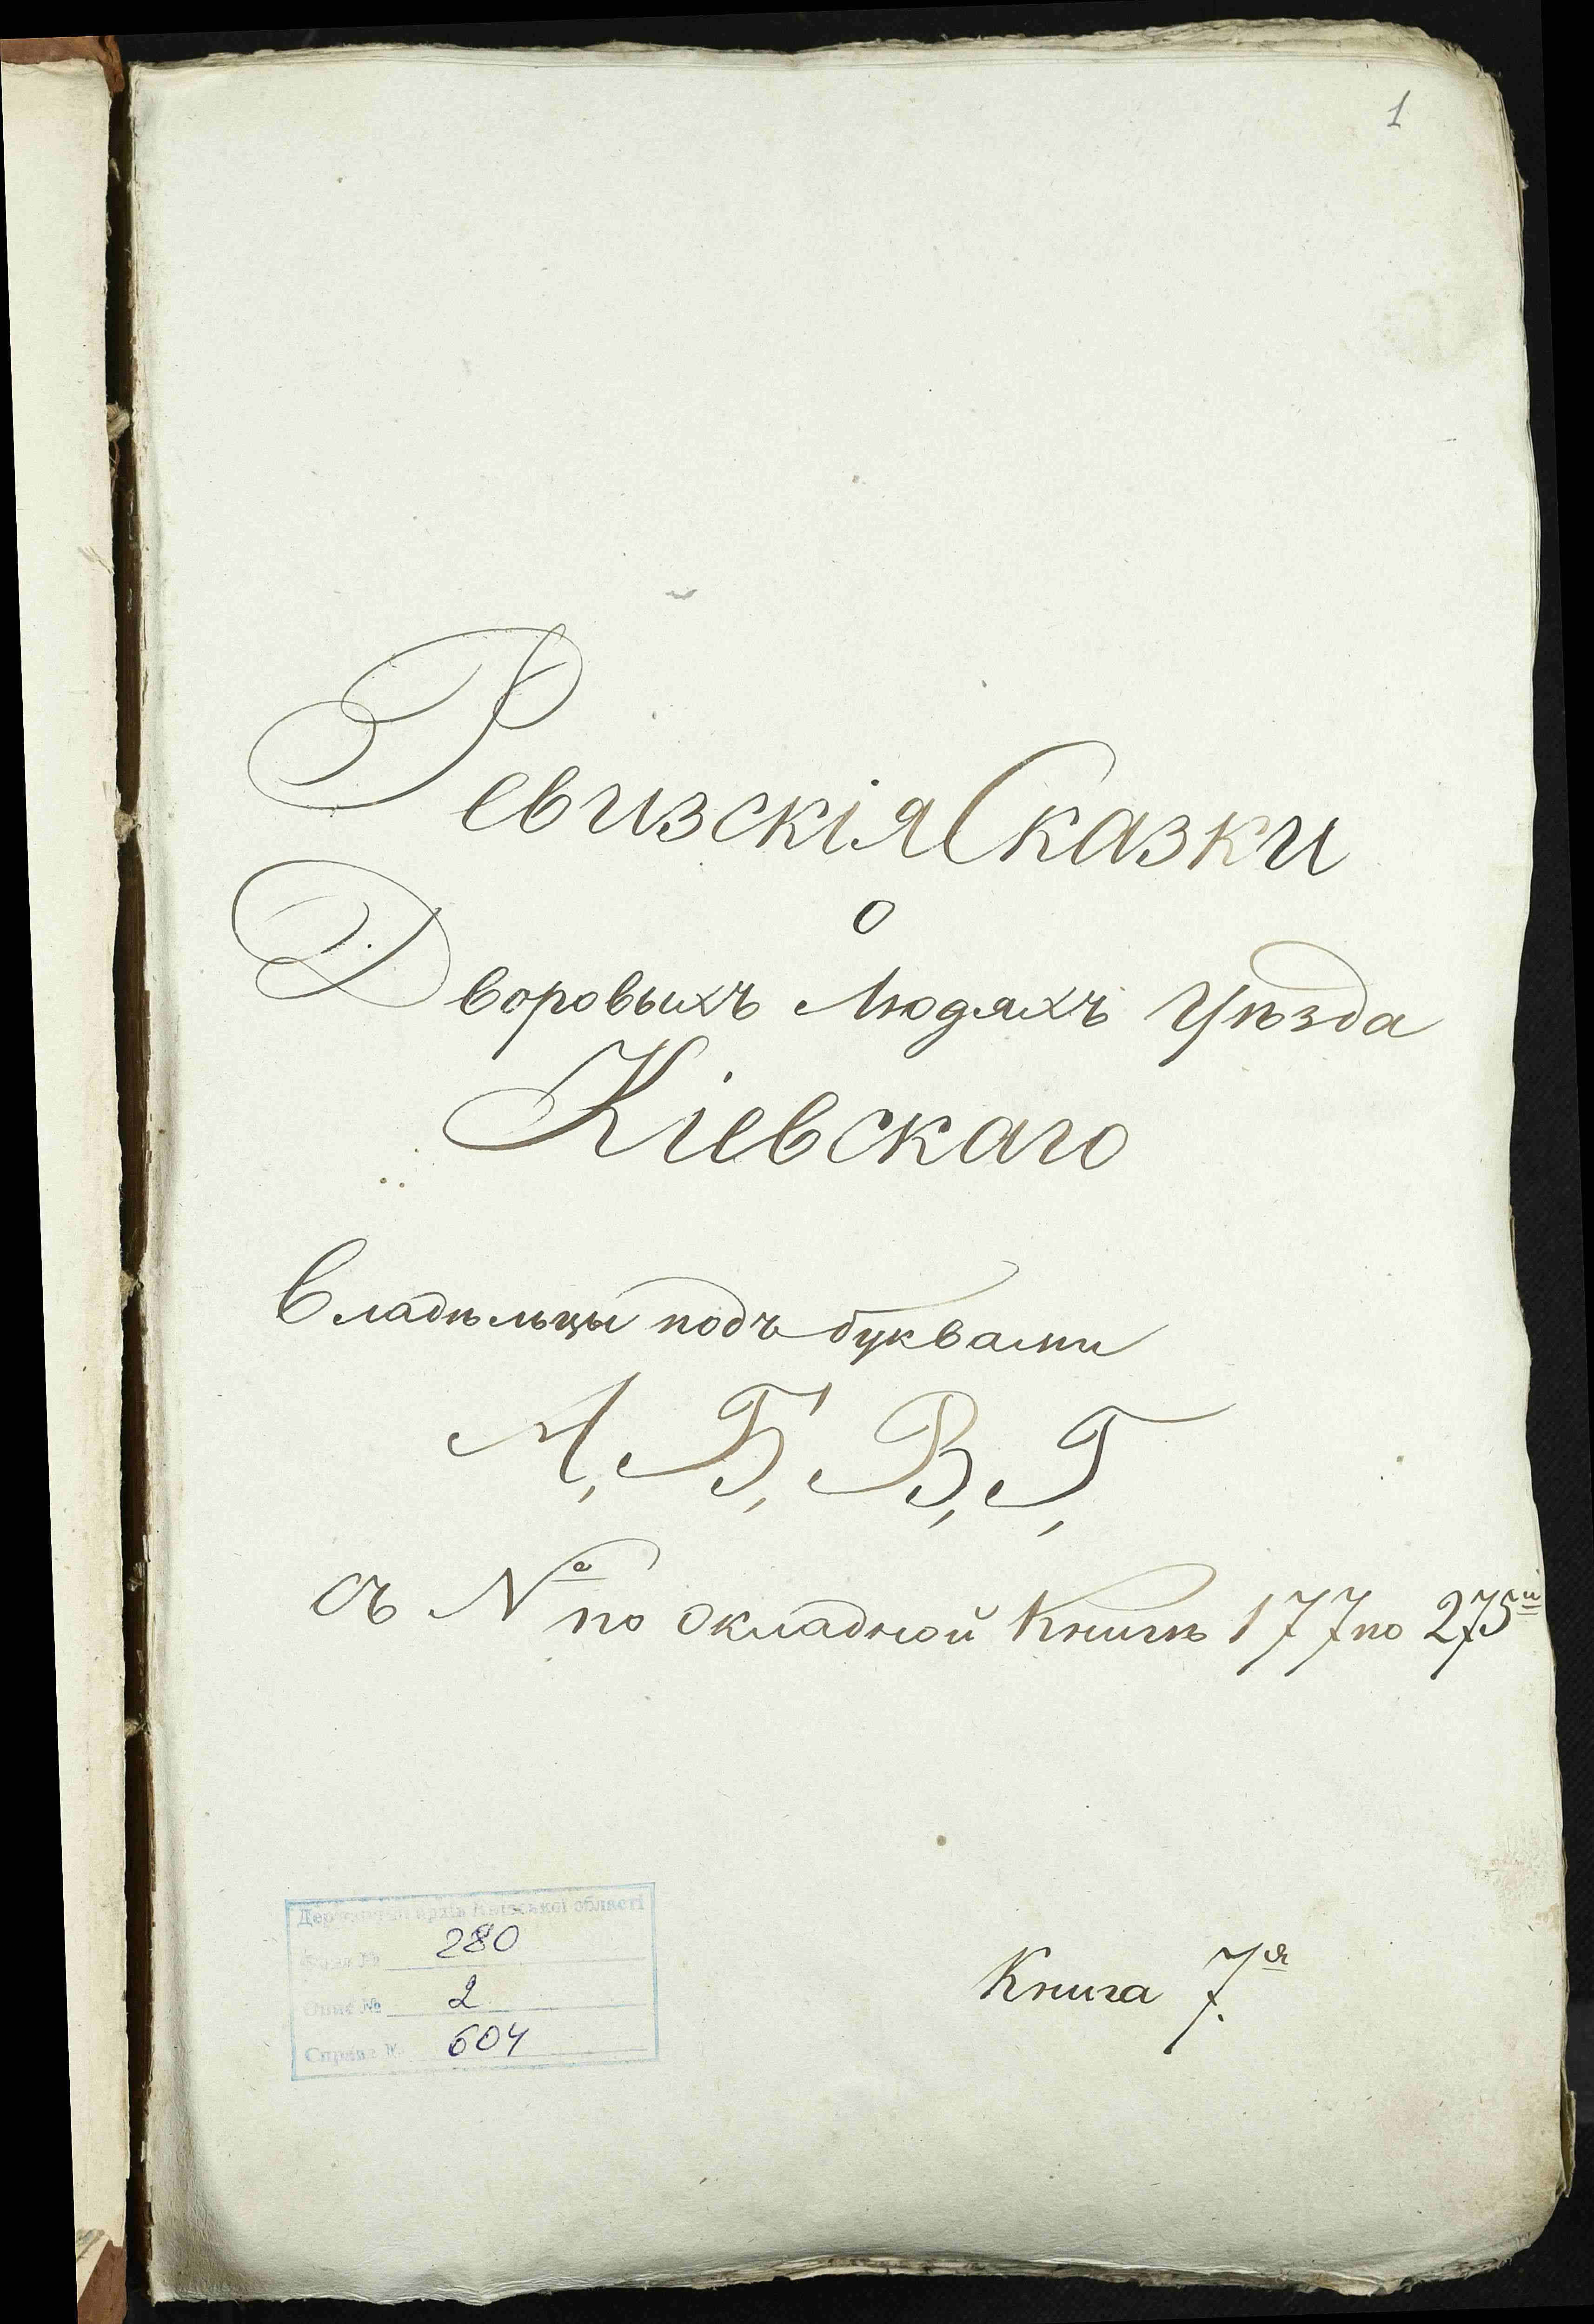 1
Ревизскія Сказки
о
Дворовыхъ Людяхъ Уѣзда
Кіевскаго
Владѣльцы подъ буквами
А, Б, В, Г,
съ № по окладной Книгѣ 177 по 275й
Державний архів Київської області
Фонд № 280
Опис № 2
Справа № 604
Книга 7.я